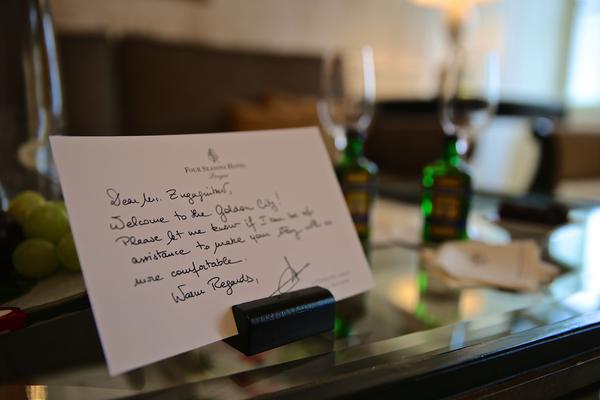 FOUR SEASONS HOTEL
Prague
Dear Mrs.
Welcome to the Golden City!
Please let me know if I can be of
assistance to make your stay
more comfortable.
Warm Regards,